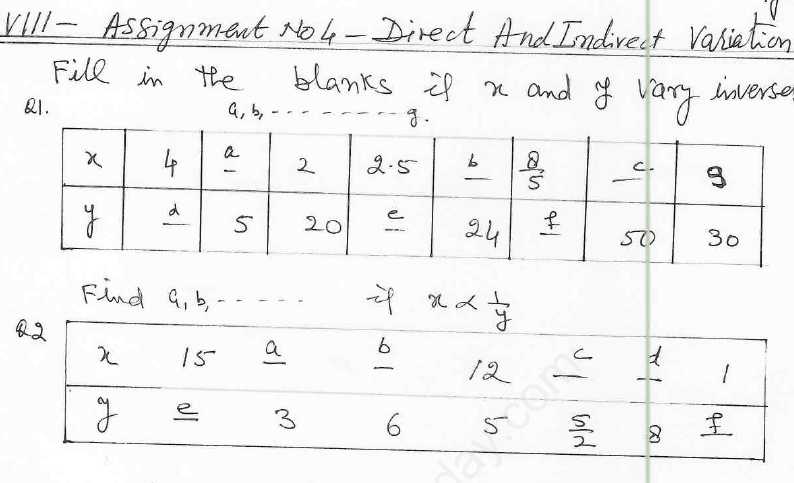 VIII - Assignment No 4 - Direct And Indirect Variation
Fill in the blanks if x and y vary inverse
Q1. a, b, - - - - - - - - - g.
x 4 a 2 2.5 b 8/5 c g
y d 5 20 e 24 f 50 30
Find a, b, - - - - - if x ∝ 1/y
Q2
x 15 a b 12 c d 1
y e 3 6 5 5/2 8 f
day.com